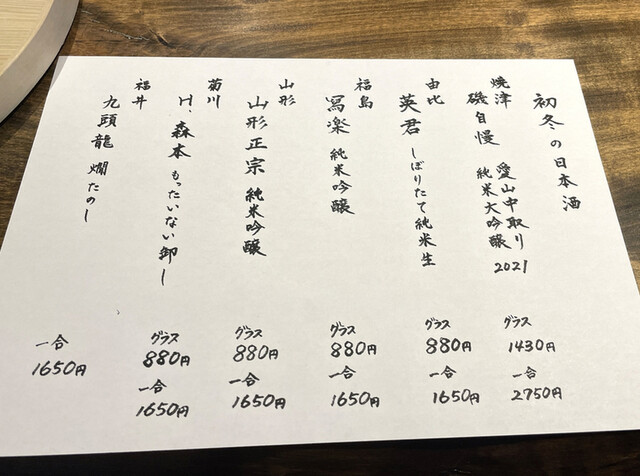 初冬の日本酒
焼津
磯自慢 愛山中取り
純米大吟醸 2021
グラス
1430円
一合
2750円
由比
英君 しぼりたて純米生
グラス
880円
一合
1650円
福島
寫楽 純米吟醸
グラス
880円
一合
1650円
山形
山形正宗 純米吟醸
グラス
880円
一合
1650円
菊川
H.森本 もったいない卸し
グラス
880円
一合
1650円
福井
九頭龍 燗たのし
一合
1650円